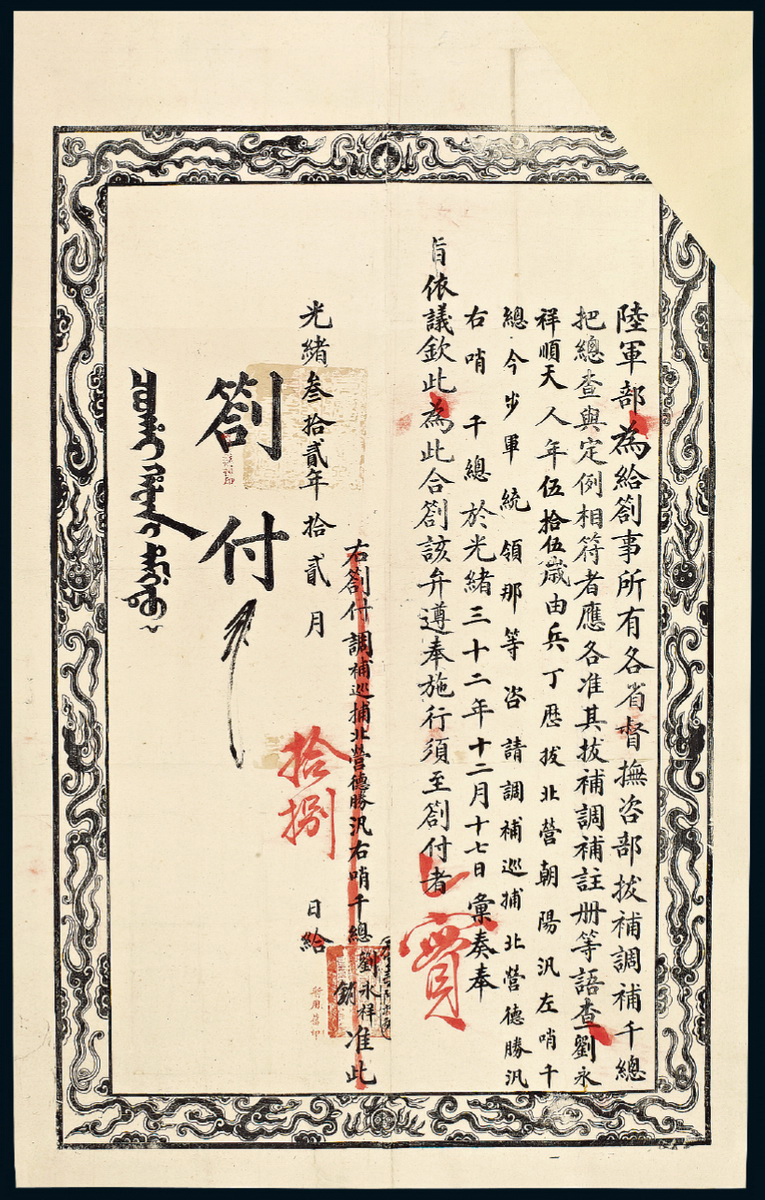 陸軍部為給劄事所有各省督撫咨部拔補調補千總
把總查與定例相符者應各准其拔補調補註册等語查劉永
祥順天人年伍拾伍歲由兵丁歷拔北營朝陽汛左哨千
總今步軍統領那等咨請調補巡捕北營德勝汛
右哨千總於光緒三十二年十二月十七日彙奏奉
旨依議欽此為此合劄該弁遵奉施行須至劄付者
右劄付調補巡捕北營德勝汛右哨千總劉永祥准此
光緒叁拾貳年拾貳月拾捌日給
劄付